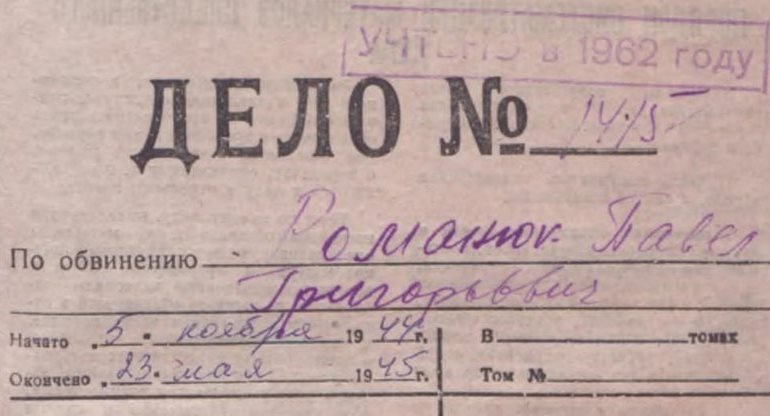 УЧТЕНО в 1962 году
ДЕЛО № 1415
По обвинению Романюк Павел
Григорьевич
Начато „5“ ноября 1944 г.
Окончено „23“ мая 1945 г.
В томах
Том №